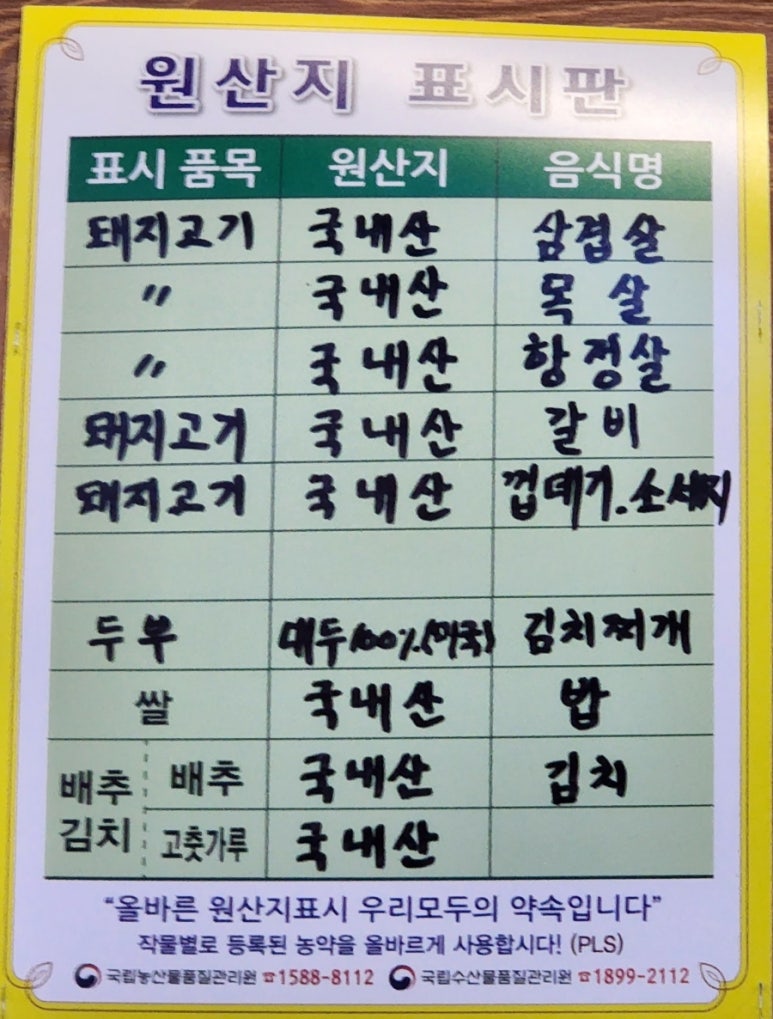 원산지 표시판
표시 품목 원산지 음식명
돼지고기 국내산 삼겹살
〃 국내산 목살
〃 국내산 항정살
돼지고기 국내산 갈비
돼지고기 국내산 껍데기.소세지
두부 대두100%(미국) 김치찌개
쌀 국내산 밥
배추김치 배추 국내산 김치
고춧가루 국내산
“올바른 원산지표시 우리모두의 약속입니다”
작물별로 등록된 농약을 올바르게 사용합시다! (PLS)
국립농산물품질관리원 ☎1588-8112 국립수산물품질관리원 ☎1899-2112